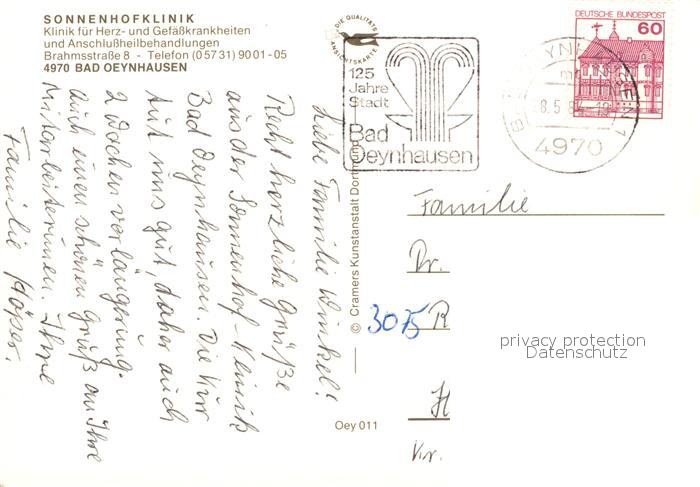 SONNENHOFKLINIK
Klinik für Herz- und Gefäßkrankheiten
und Anschlußheilbehandlungen
Brahmsstraße 8 - Telefon (05731) 9001-05
4970 BAD OEYNHAUSEN
DIE QUALITÄTS
ANSICHTSKARTE
125
Jahre
Stadt
Bad
Oeynhausen
DEUTSCHE BUNDESPOST
60
BAD OEYNHAUSEN 1
8.5.8
4970
Liebe Familie Winkel!
Recht herzliche Grüße
aus der Sonnenhof-Klinik
Bad Oeynhausen. Die Kur
tut uns gut, daher auch
2 Wochen verlängerung.
Auch einen schönen Gruß an Ihre
Mitarbeiterinnen. Ihre
Familie Höper.
© Cramers Kunstanstalt Dortmund
Oey 011
Familie
Dr.
3075 R
H
Kr.
privacy protection
Datenschutz